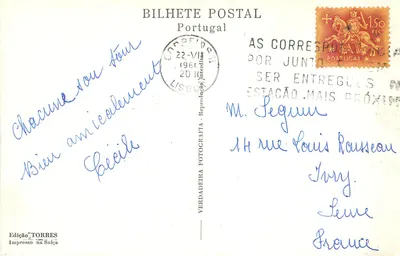 BILHETE POSTAL
Portugal
CORREIOS
22-VII
20 H
LISBOA
1$50
PORTUGAL
AS CORRESPO
POR JUNTO
SER ENTREGUES
ESTAÇÃO MAIS PRÓXIM
Chacune son tour
Bien amicalement
Cécile
M. Seguin
14 rue Louis Rousseau
Ivry.
Seine
France
VERDADEIRA FOTOGRAFIA - Reprodução Interdita
Edição "TORRES"
Impresso na Suíça